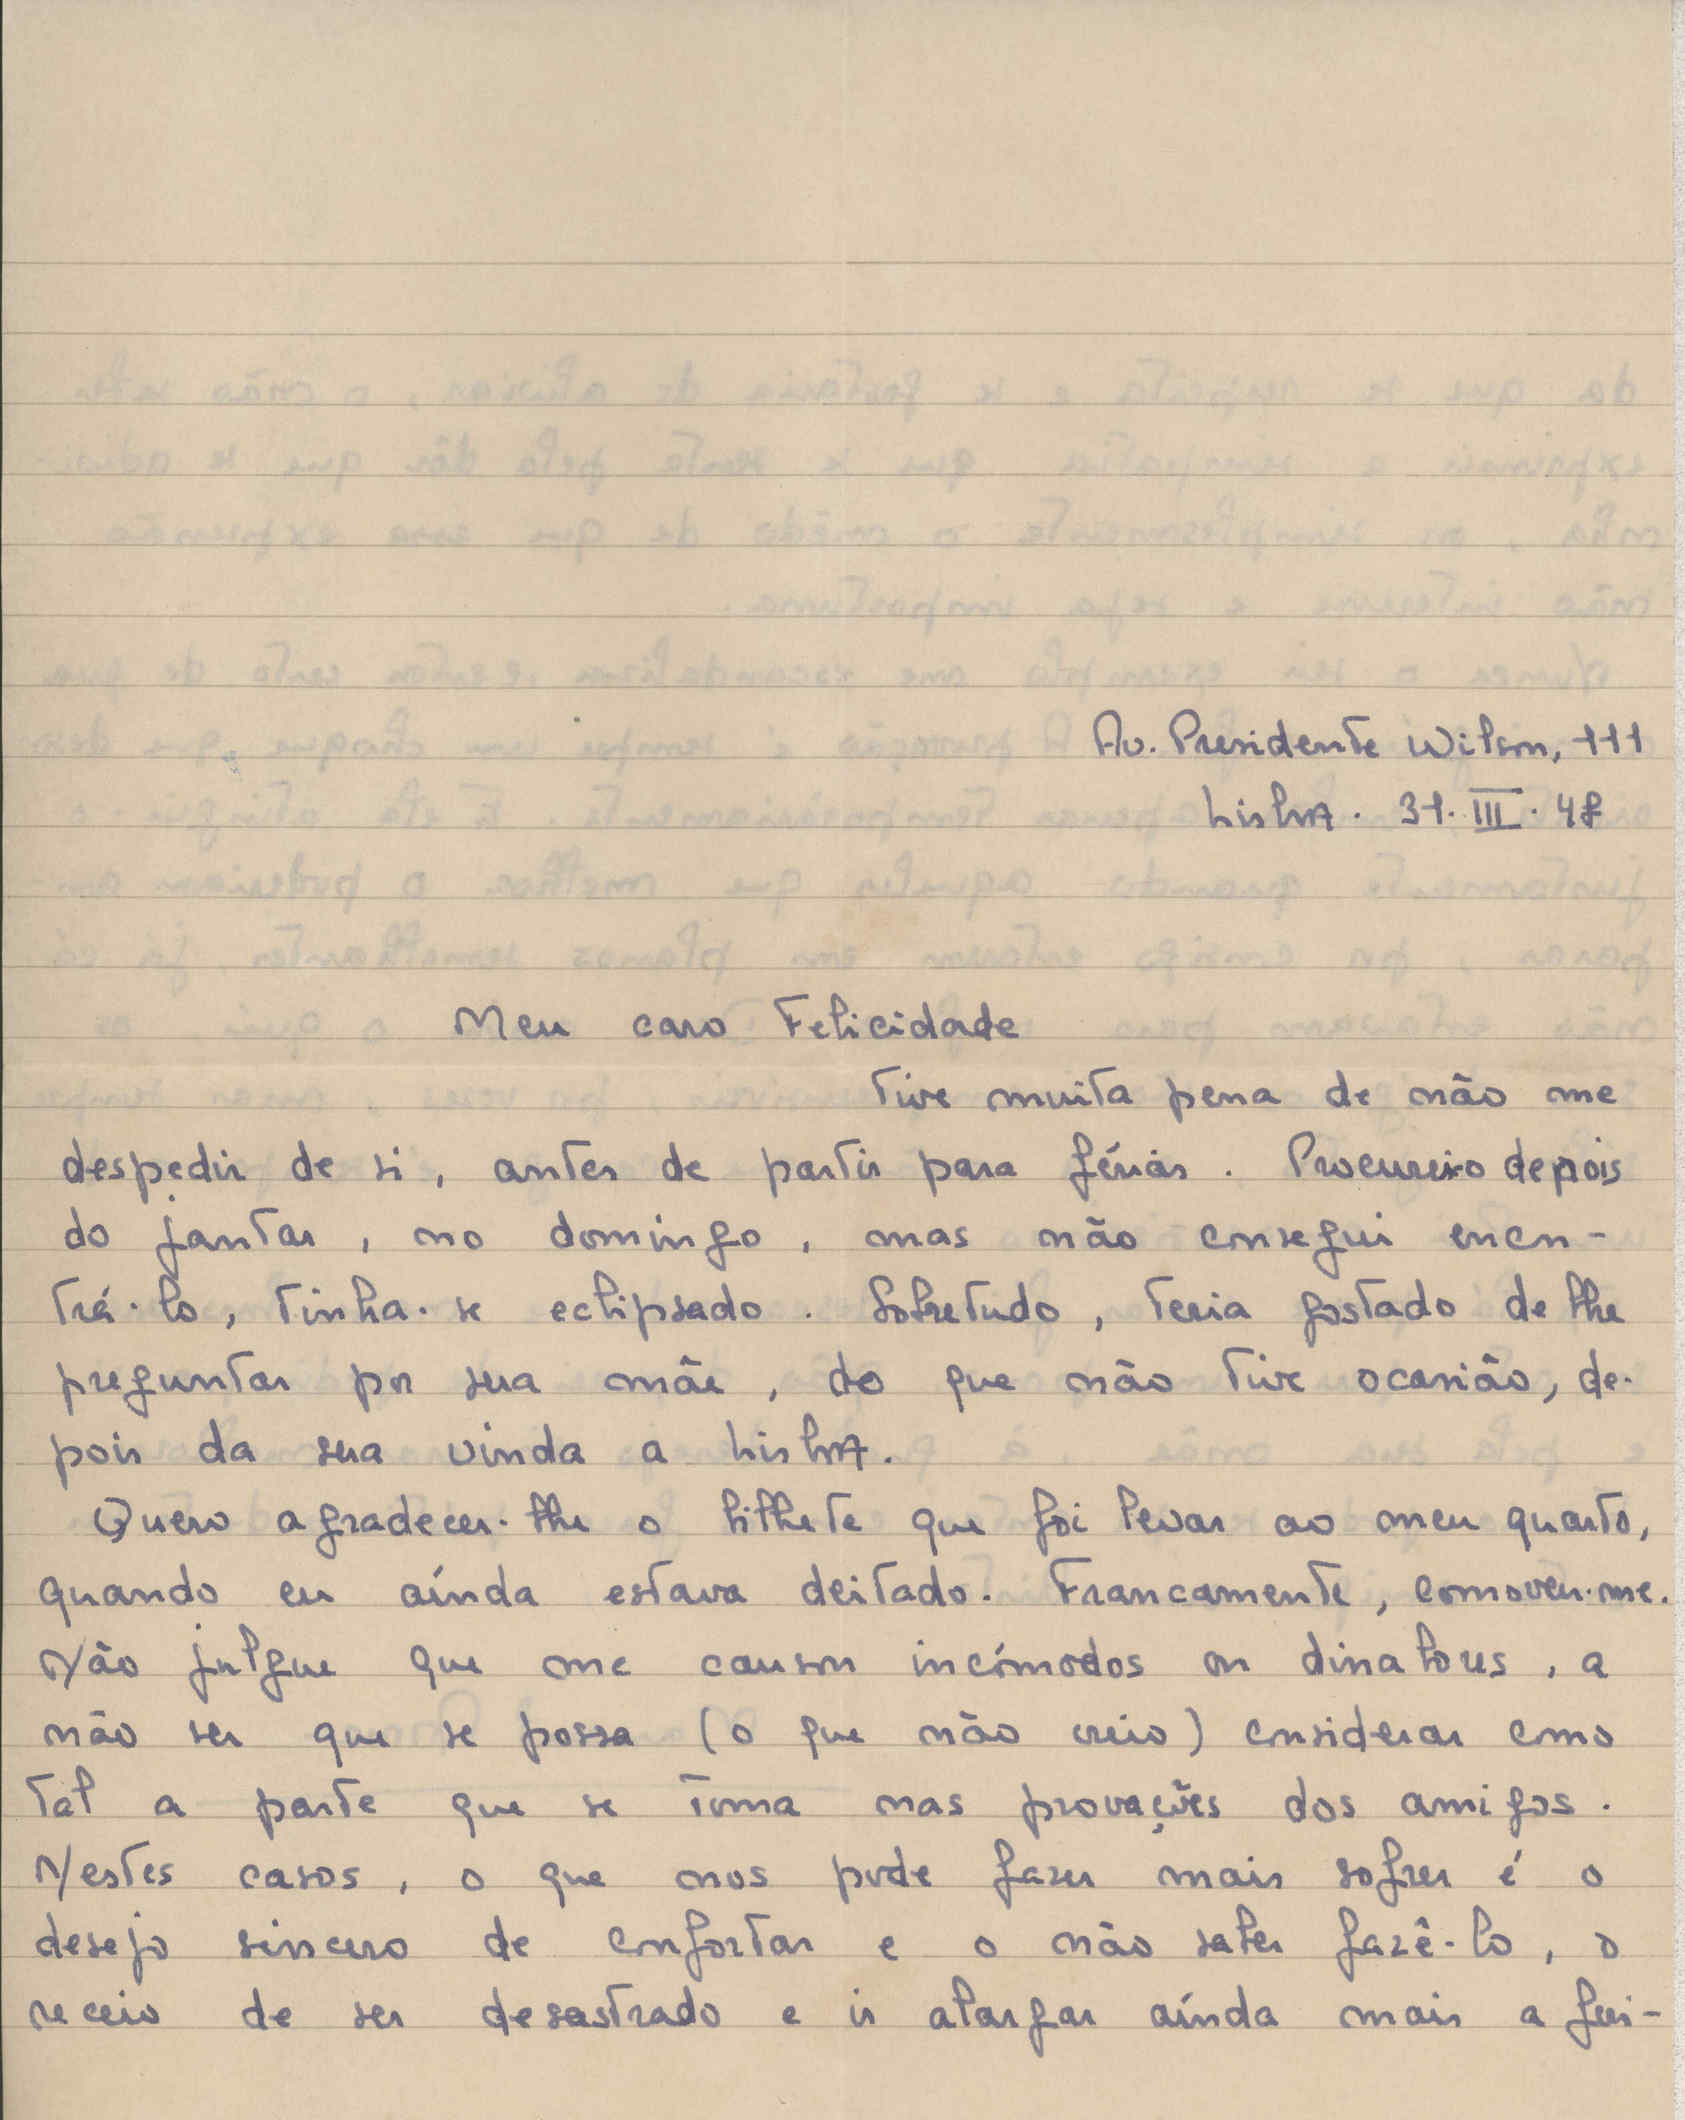 Av. Presidente Wilson, 111
Lisboa. 31. III. 48
Meu caro Felicidade
Tive muita pena de não me
despedir de si, antes de partir para férias. Procurei-o depois
do jantar, no domingo, mas não consegui encon-
trá-lo, tinha-se eclipsado. Sobretudo, teria gostado de lhe
preguntar por sua mãe, do que não tive ocasião, de-
pois da sua vinda a Lisboa.
Quero agradecer-lhe o bilhete que foi levar ao meu quarto,
quando eu aínda estava deitado. Francamente, comoveu-me.
Não julgue que me causou incómodos ou dissabores, a
não ser que se possa (o que não creio) considerar como
tal a parte que se toma nas provações dos amigos.
Nestes casos, o que nos pode fazer mais sofrer é o
desejo sincero de confortar e o não saber fazê-lo, o
receio de ser desastrado e ir alargar aínda mais a feri-